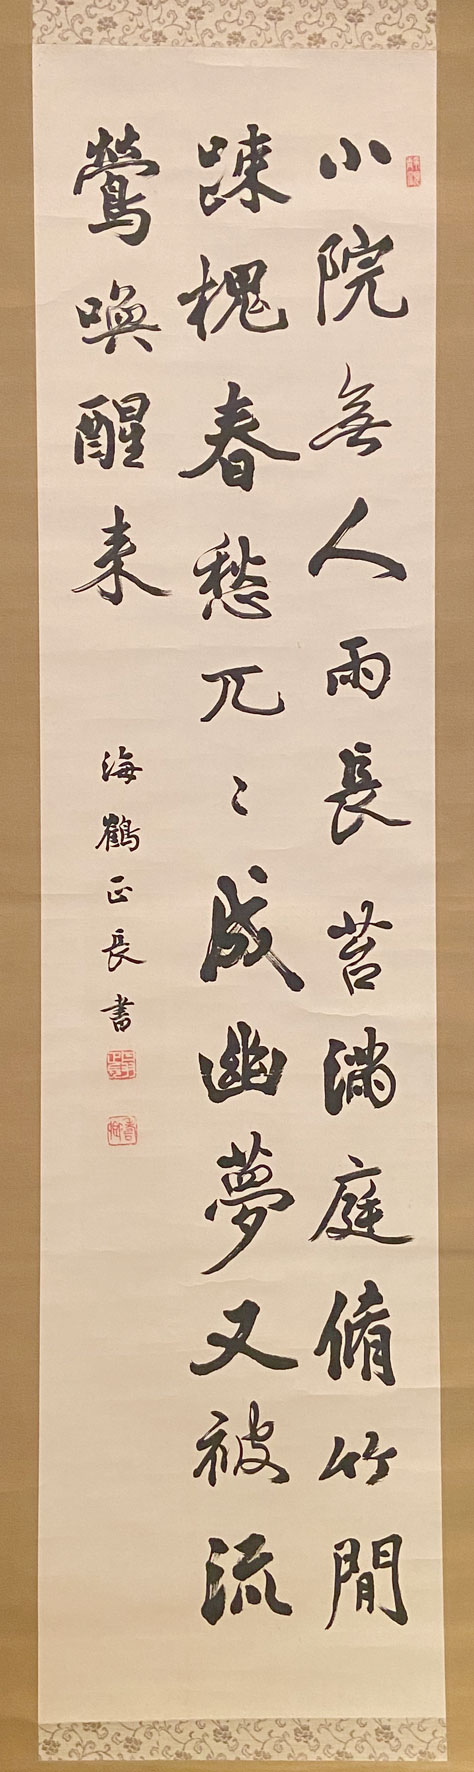 小院無人雨長苔滿庭脩竹閒
踈槐春愁兀〻成幽夢又被流
鶯喚醒来
海鶴正長書